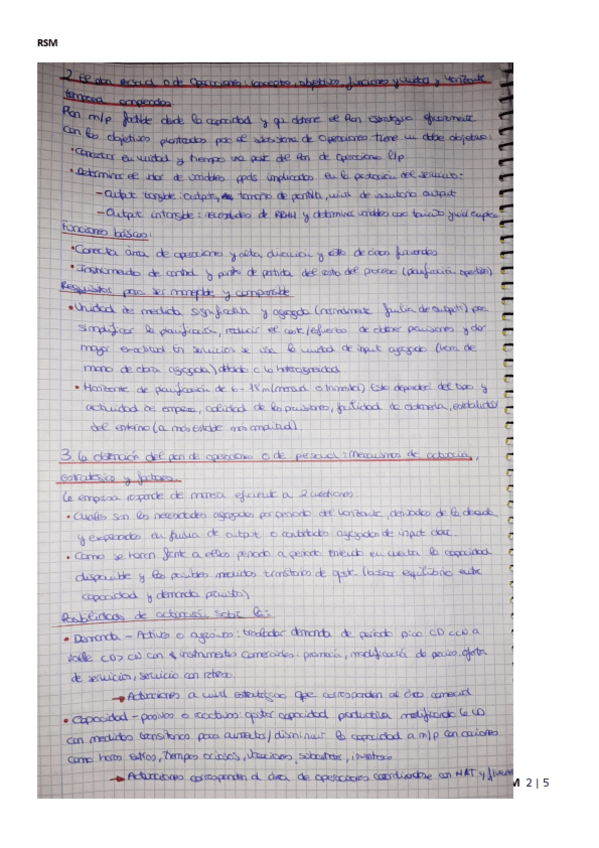 RSM
2. El plan personal o de Operaciones: concepto, objetivos, funciones y unidad y horizonte
temporal empleados
Plan m/p factible desde la capacidad y que obtiene el Plan Estratégico eficazmente
con los objetivos planteados por el subsistema de Operaciones. Tiene un doble objetivo:
• Concretar en unidad y tiempo una parte del Plan de Operaciones l/p
• Determinar el valor de variables ppals implicadas en la prestación del servicio:
– Output tangible: outputs, tamaño de plantilla, nivel de inventario output
– Output intangible: necesidades de RRHH y determina variables como
Funciones básicas:
• Conecta área de operaciones y alta dirección y esto de áreas funcionales
• Instrumento de control y punto de partida del resto del proceso (planificación
Requisitos para ser manejable y comparable
• Unidad de medida significativa y agregada (normalmente familia de outputs) para
simplificar la planificación, reducir el coste/esfuerzo de obtener previsiones y dar
mayor exactitud. En servicios se usa la unidad de input agregado (horas de
mano de obra agregada) debido a la heterogeneidad
• Horizonte de planificación de 6 - 18 m (mensual o trimestral). Esto dependerá del tipo y
actividad de empresa, calidad de las previsiones, facilidad de obtenerla, estabilidad
del entorno (a más estable más amplitud).
3. La obtención del plan de operaciones o de personal: Mecanismos de actuación,
estrategias y factores.
La empresa responde de manera eficiente a 2 cuestiones:
• Cuáles son las necesidades agregadas por periodo del horizonte, derivadas de la demanda
y expresadas en familia de output o cantidades agregadas de input clave.
• Como se harán frente a ellos periodo a periodo teniendo en cuenta la capacidad
disponible y las posibles medidas transitorias de ajuste (buscar equilibrio entre
capacidad y demanda prevista)
Posibilidades de actuación sobre la:
• Demanda – Activas o agresivas: trasladar demanda de periodo pico CD<CN a
valle CD>CN con instrumentos comerciales: promoción, modificación de precio, oferta
de servicios, servicio con retraso.
→ Actuaciones a nivel estratégico que corresponden al área comercial
• Capacidad – pasivas o reactivas: ajustar capacidad productiva modificando la CD
con medidas transitorias para aumentar/disminuir la capacidad a m/p con acciones
como horas extras, tiempos ociosos, vacaciones, subcontratar, inventarios
→ Actuaciones corresponden al área de operaciones coordinándose con MKT y
M 2 | 5